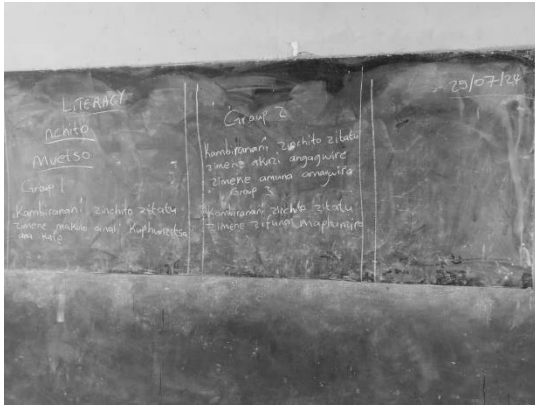 LITERACY
nchito
Mvetso
Group 1
Kambiranani zinchito zitatu
zimene makolo anali kuphunzitsa
ana kale
Group 2
Kambiranani zinchito zitatu
zimene akazi angagwire
zimene amuna amagwira
Group 3
Kambiranani zinchito zitatu
zimene zifuna maphunziro
25/07/24